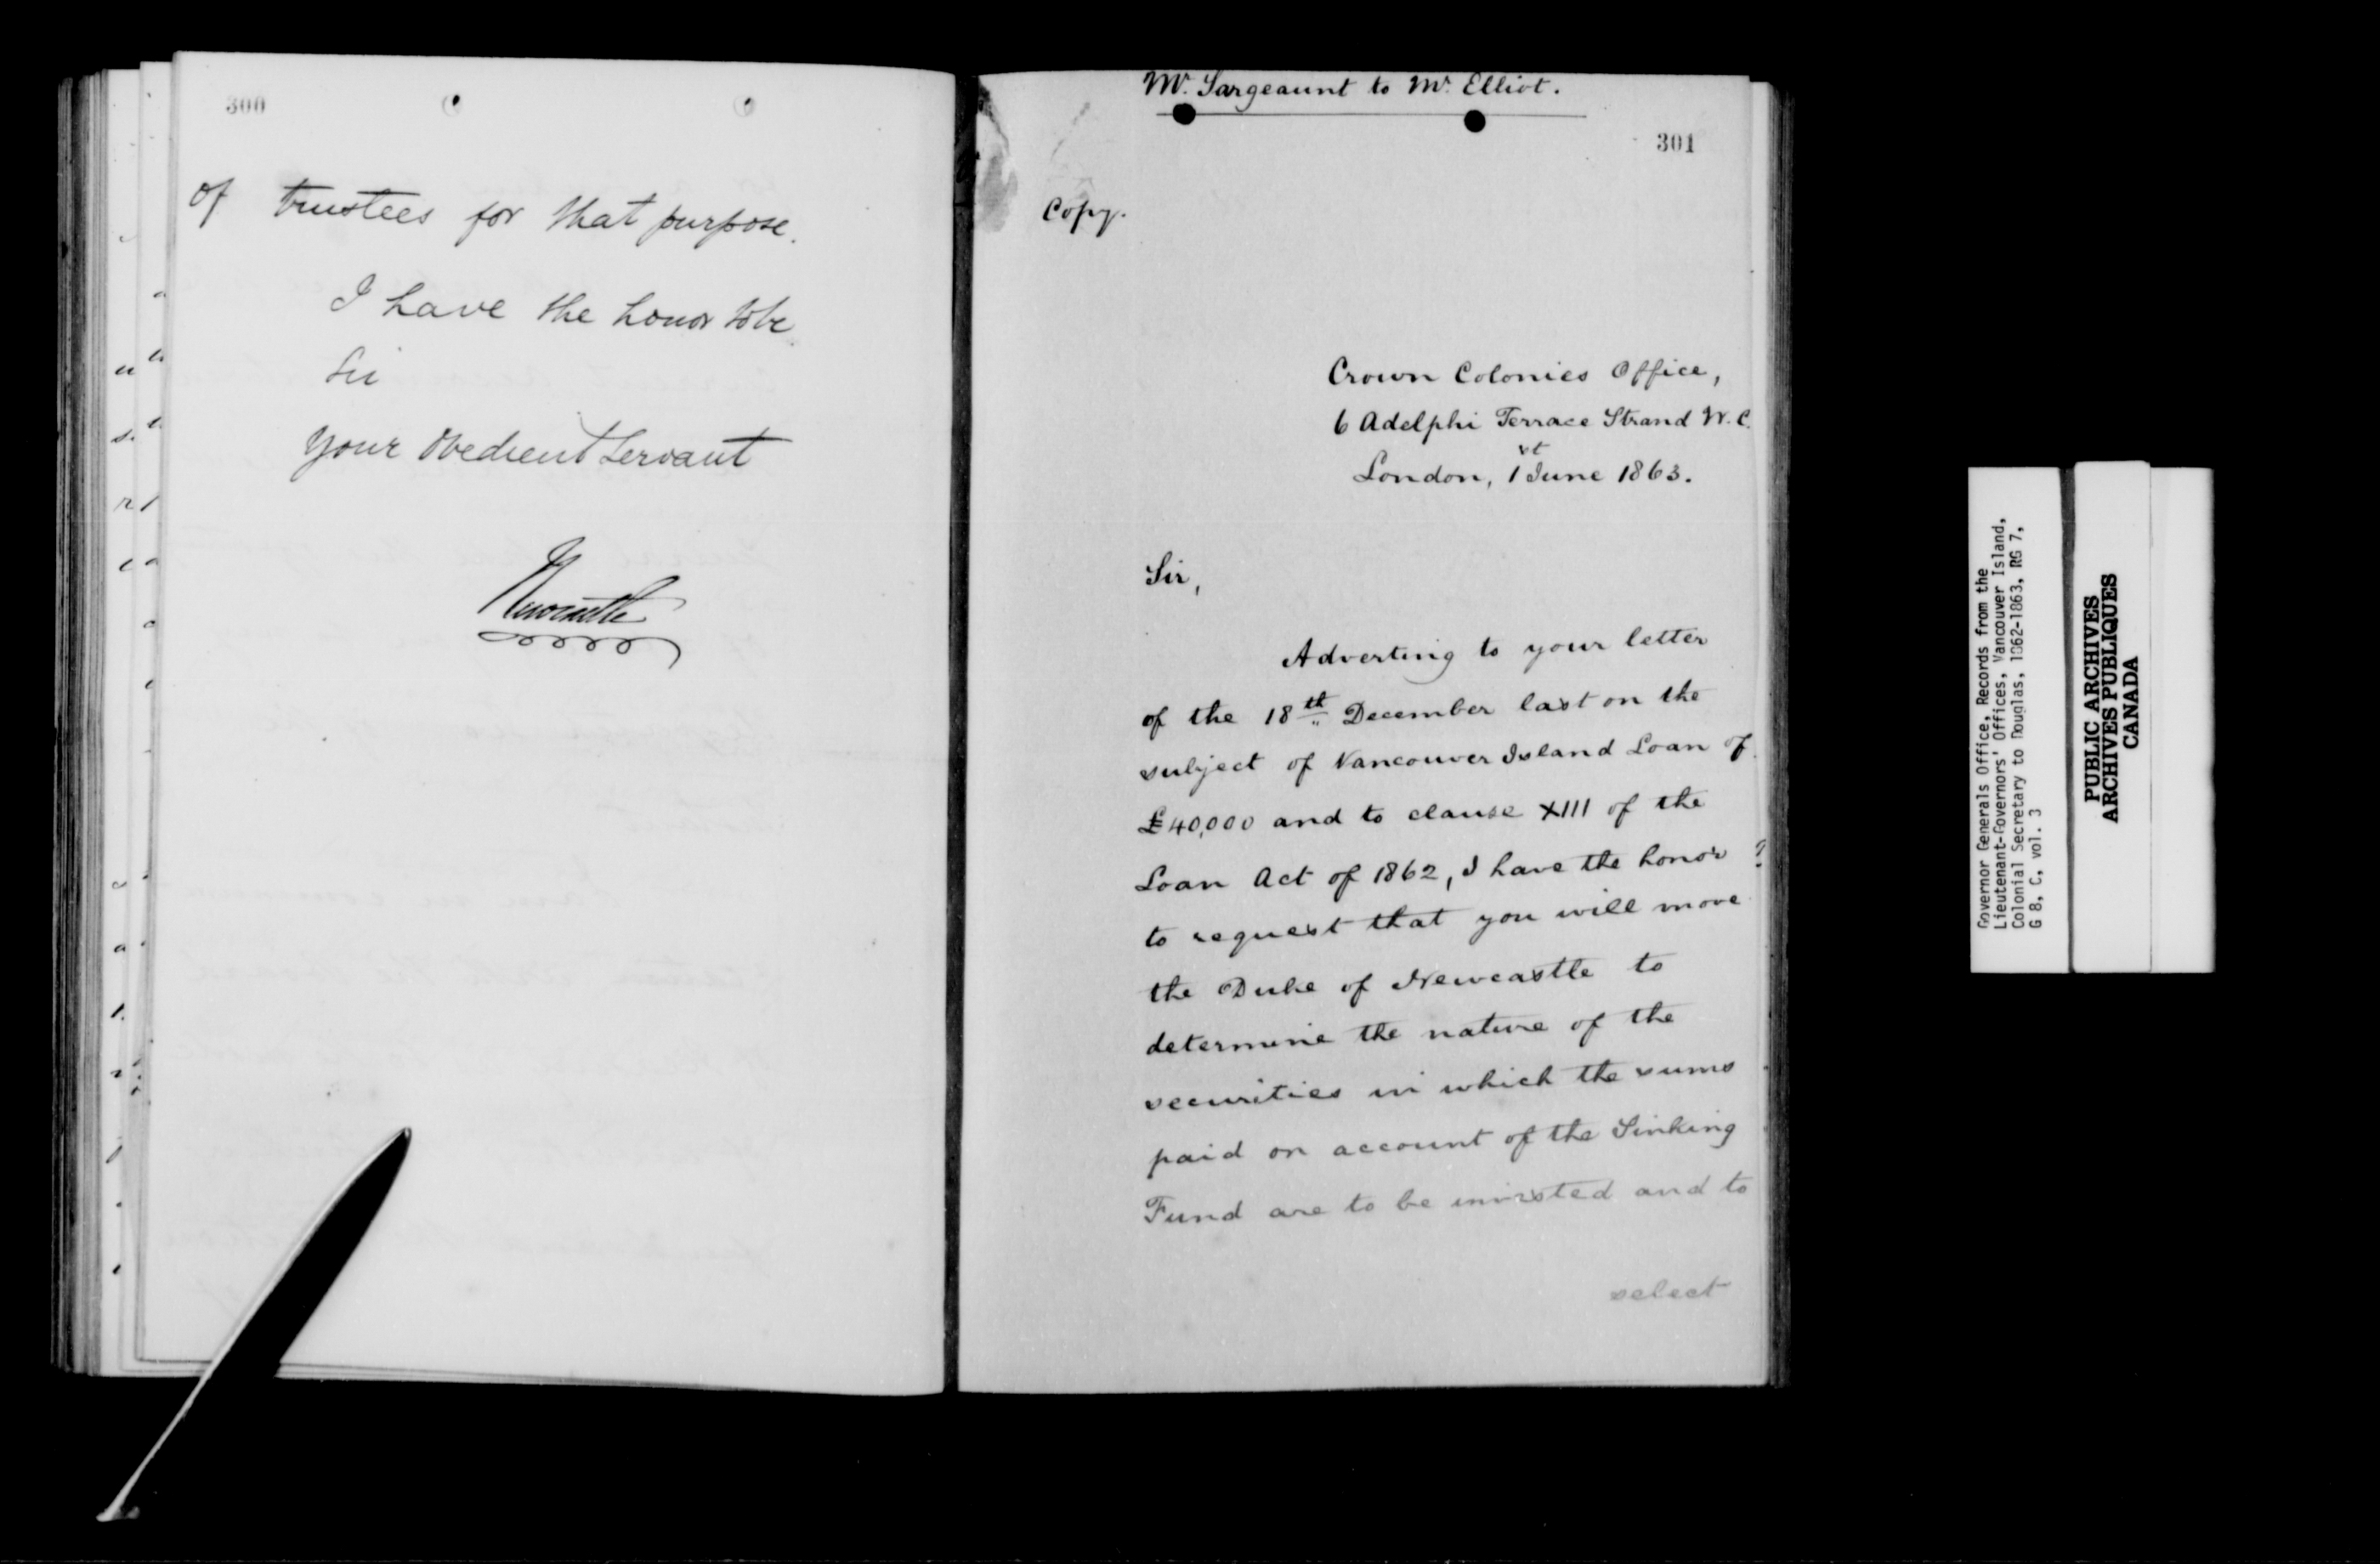 300
of trustees for that purpose.
I have the honor to be
Sir
Your Obedient Servant
Newcastle
Mr. Sargeaunt to Mr. Elliot.
301
Copy.
Crown Colonies Office,
6 Adelphi Terrace Strand W.C.
London, 1st June 1863.
Sir,
Adverting to your letter
of the 18th December last on the
subject of Vancouver Island Loan of
£40,000 and to clause XIII of the
Loan Act of 1862, I have the honor
to request that you will move
the Duke of Newcastle to
determine the nature of the
securities in which the sums
paid on account of the Sinking
Fund are to be invested and to
select
Governor Generals Office, Records from the
Lieutenant-Governors' Offices, Vancouver Island,
Colonial Secretary to Douglas, 1862-1863, RG 7,
G 8, C, vol. 3
PUBLIC ARCHIVES
ARCHIVES PUBLIQUES
CANADA